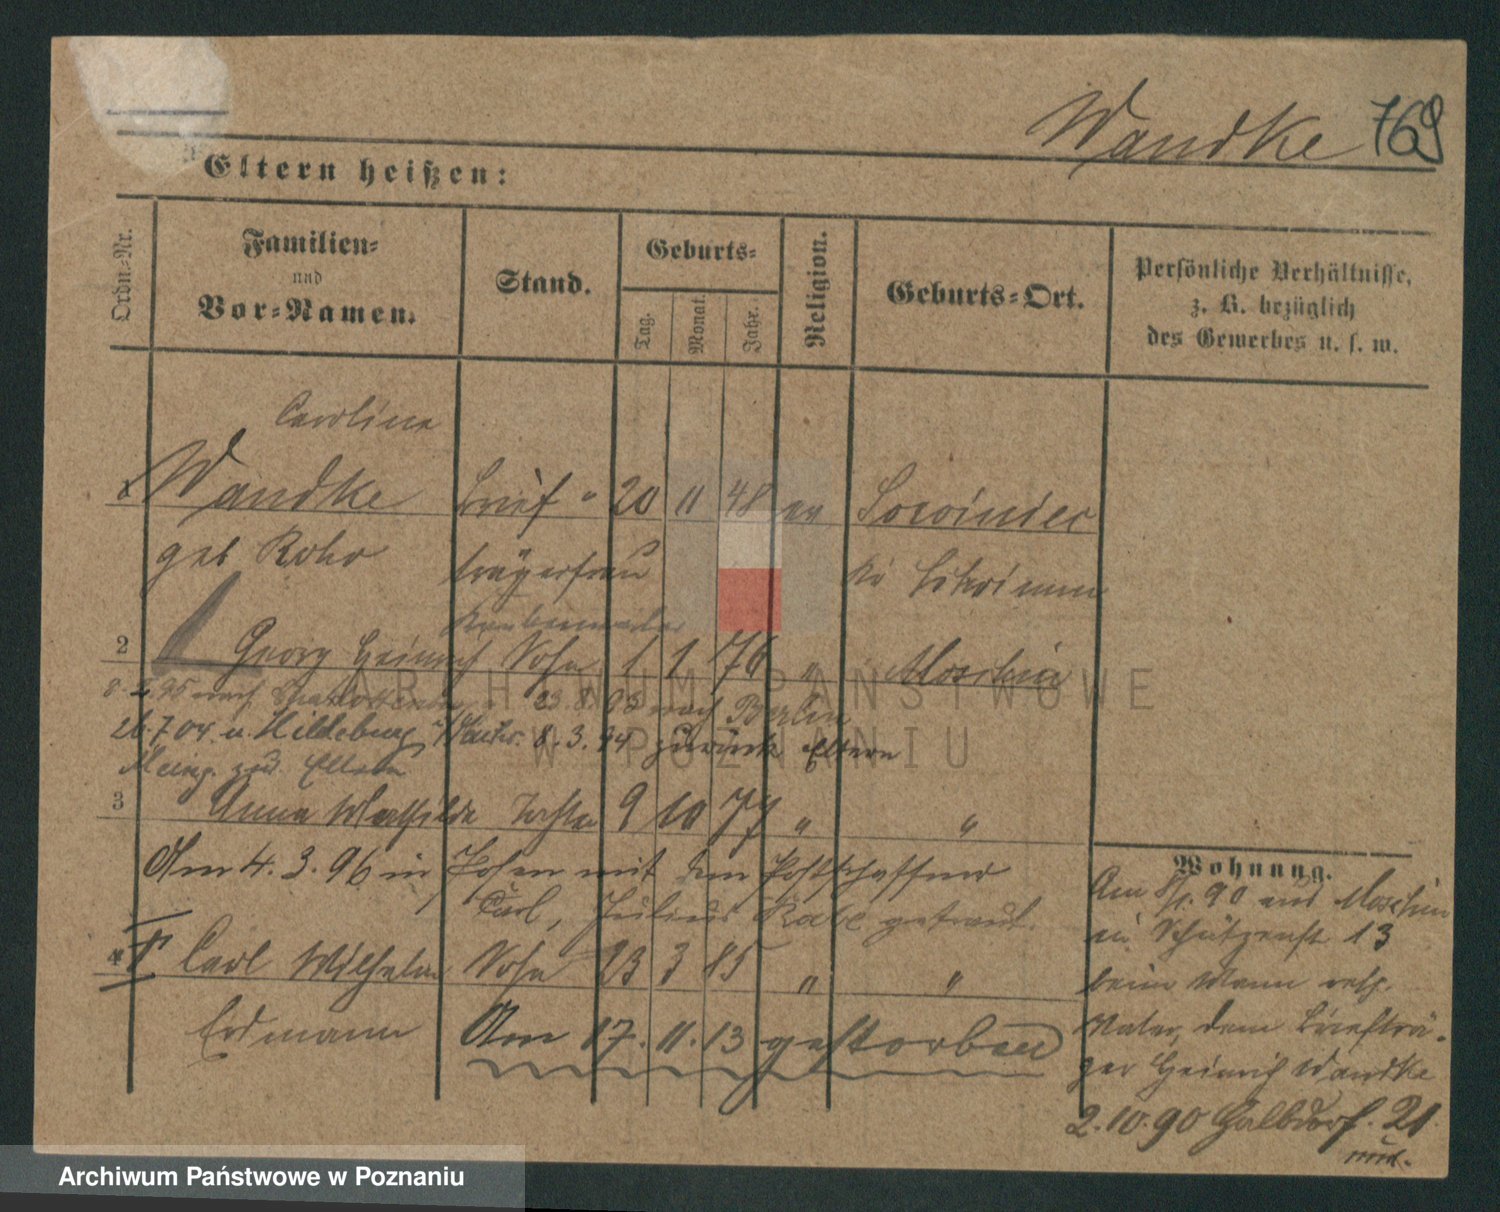 Wandke 769
Eltern heißen:
Ordn.-Nr.
Familien-
und
Vor-Namen.
Stand.
Geburts-
Tag.
Monat.
Jahr.
Religion.
Geburts-Ort.
Persönliche Verhältnisse,
z. B. bezüglich
des Gewerbes u. s. w.
Caroline
1 Wandke Brief- 20 11 48 ev Sowiniec
geb Rohr trägerfrau
2 Georg Heinrich Sohn 1 1 76 " Moschin
nach 23. 8. 05 nach Berlin
26.7.04. u. Hildeburg 8. 3. 94 zurück Eltern
Eltern
3 Anna Mathilde Tochter 9 10 77 " "
Am 4. 3. 96 in Posen mit dem Postschaffner
Carl, Julius Rabe getraut.
4 Carl Wilhelm Sohn 23 3 85 " "
Erdmann Am 17. 11. 13 gestorben
Wohnung.
Am 8/1. 90 aus Moschin
in Schützenst. 13
beim Mann resp.
Vater, dem Briefträ-
ger Heinrich Wandke
2. 10. 90 Halbdorf. 21
ARCHIWUM PAŃSTWOWE
W POZNANIU
Archiwum Państwowe w Poznaniu